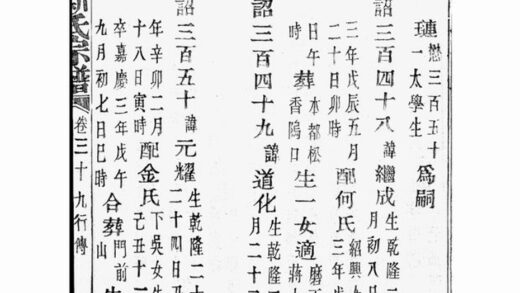 璉懋三百五十一太學生為嗣
詔三百四十八諱繼成生乾隆
月初八日
三年戊辰五月二十日卯時配何氏紹興
三年
日午時葬本都松香隝口生一女適
蔣
詔三百四十九諱道化生乾隆
月二十
詔三百五十諱元耀生乾隆二十
二十四日
年辛卯二月十八日寅時配金氏下吳女生
己丑十
卒嘉慶三年戊午九月初七日巳時合葬門前山
氏宗譜卷三十九行傳